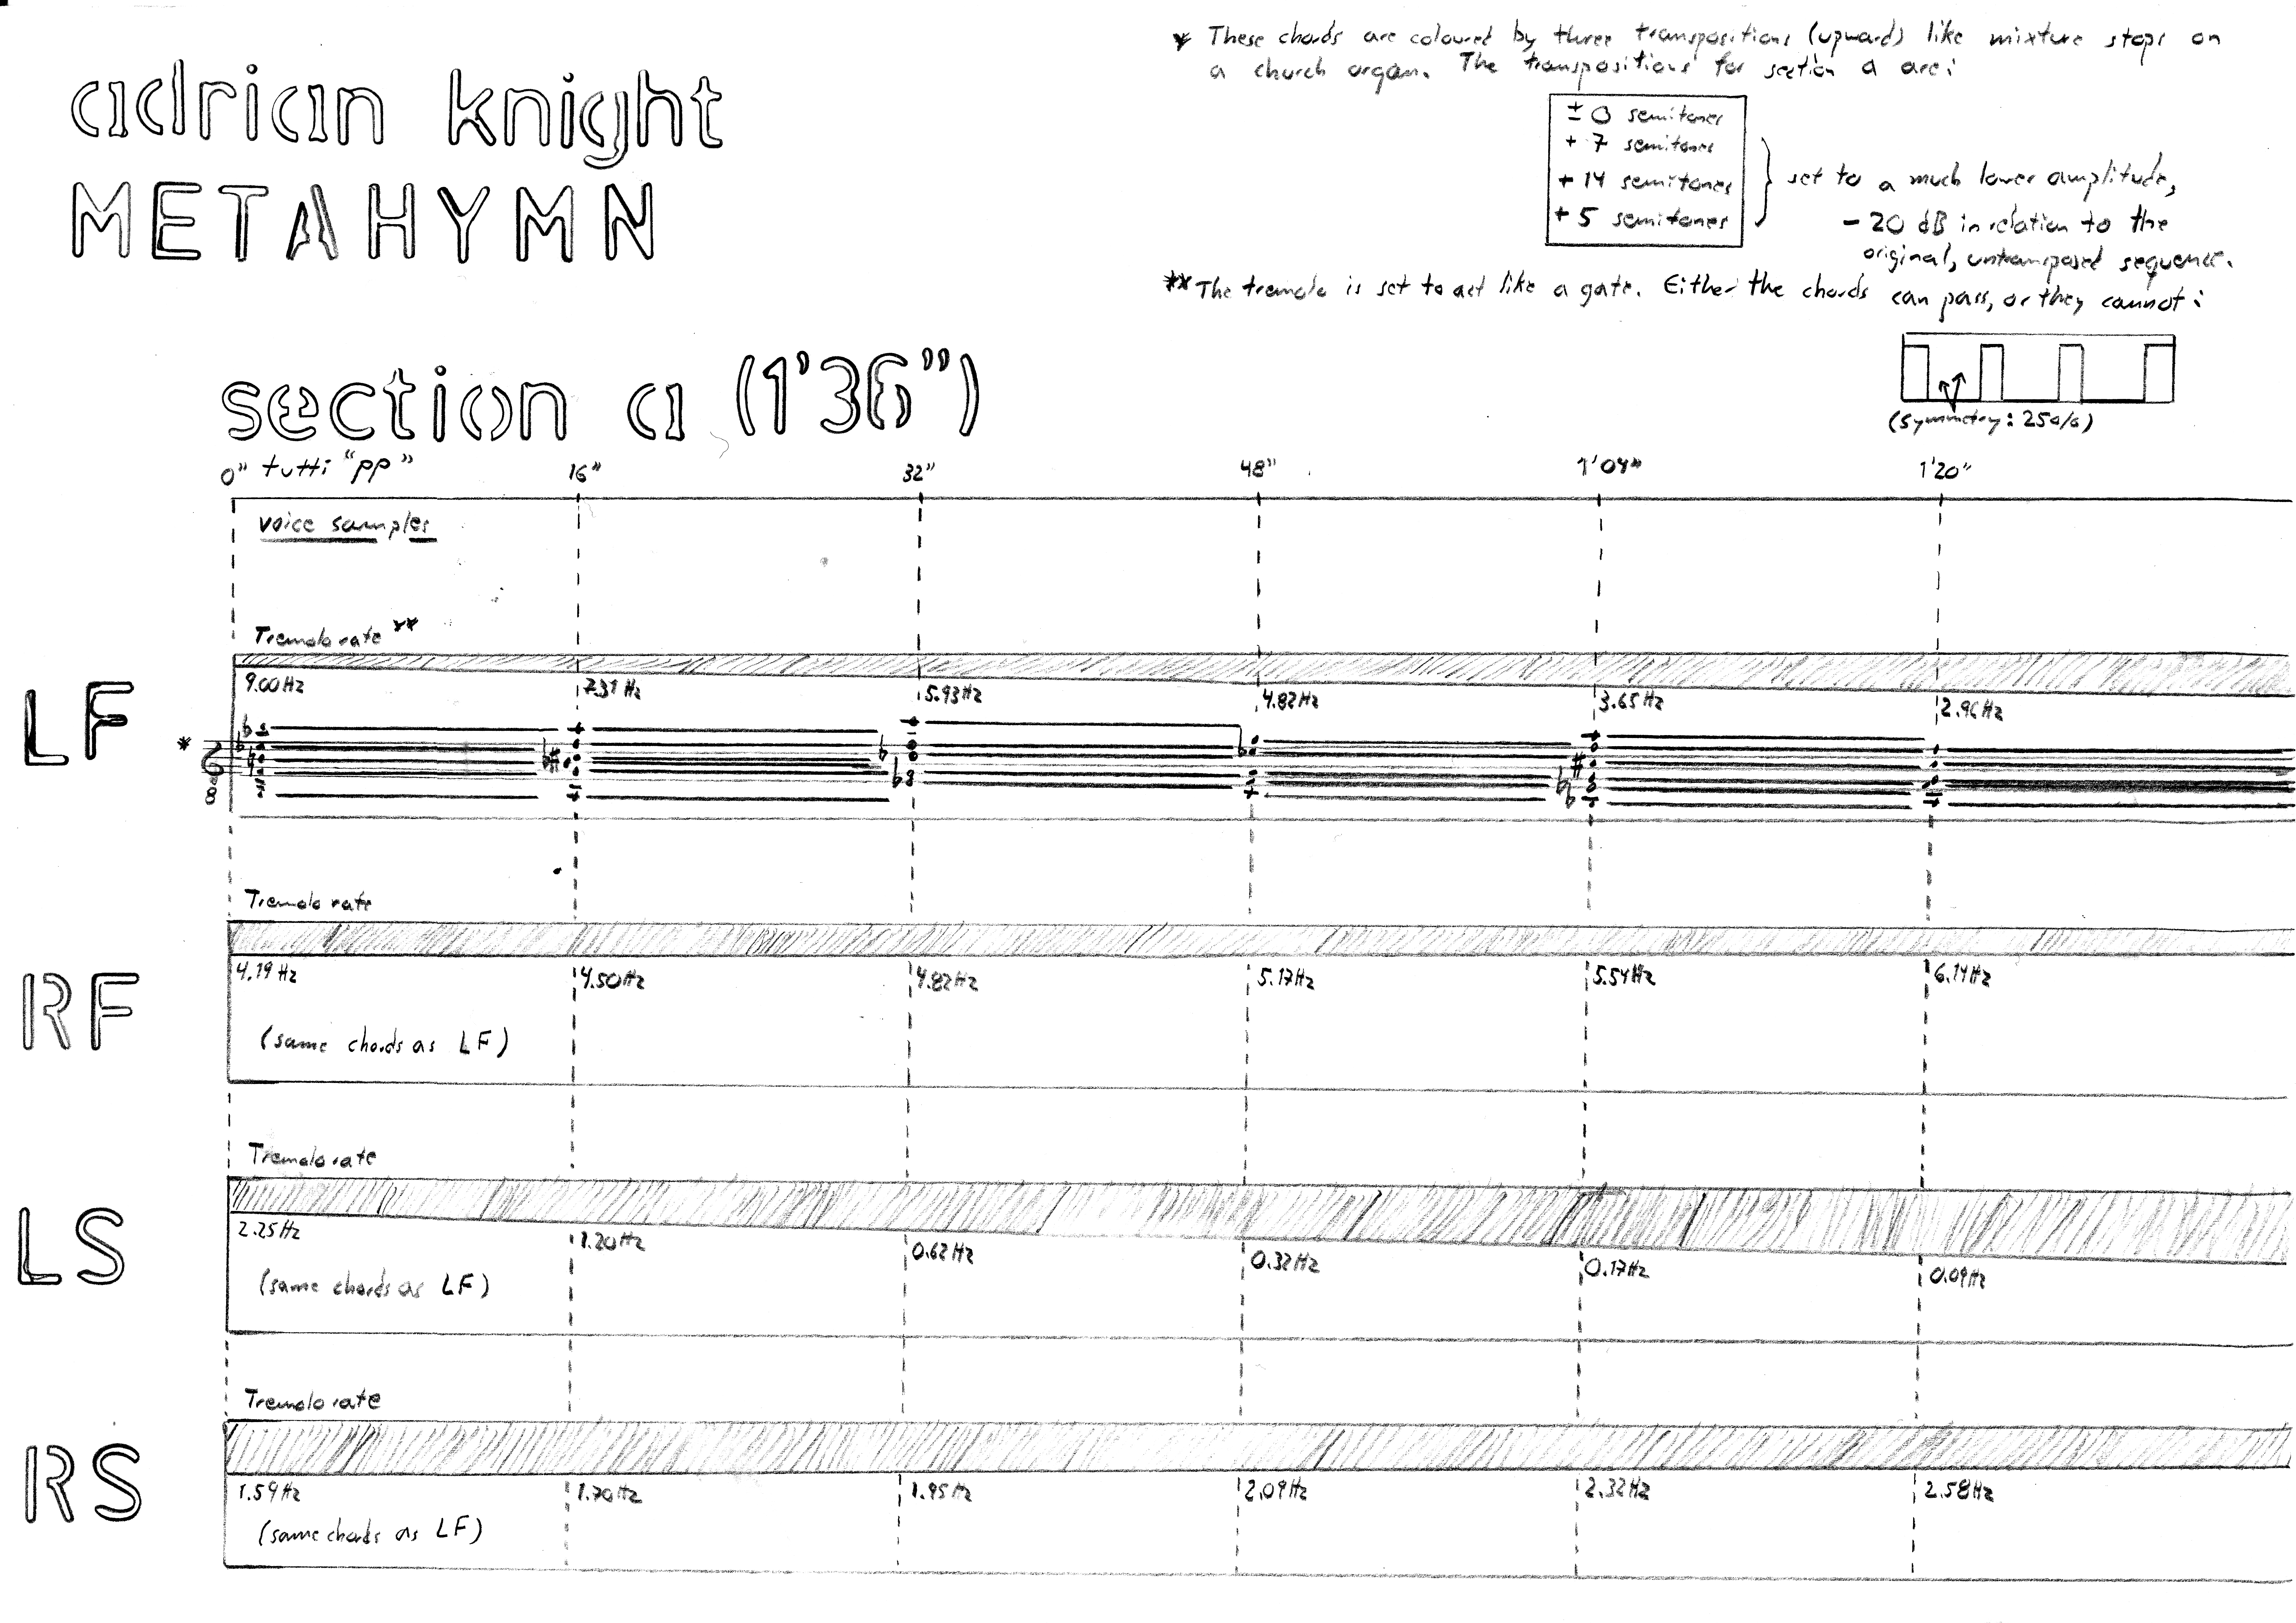 adrian knight
METAHYMN
* These chords are coloured by three transpositions (upward) like mixture stops on
a church organ. The transpositions for section a are:
± 0 semitones
+ 7 semitones
+ 14 semitones
+ 5 semitones
set to a much lower amplitude,
- 20 dB in relation to the
original, untransposed sequence.
** The tremolo is set to act like a gate. Either the chords can pass, or they cannot:
(symmetry: 25%)
section a (1'36")
0" tutti "pp" 16" 32" 48" 1'04" 1'20"
voice samples
Tremolo rate **
LF
9.00Hz 7.31Hz 5.93Hz 4.82Hz 3.65Hz 2.96Hz
*
8
Tremolo rate
RF
4.19Hz 4.50Hz 4.82Hz 5.17Hz 5.54Hz 6.14Hz
(same chords as LF)
Tremolo rate
LS
2.25Hz 1.20Hz 0.62Hz 0.32Hz 0.17Hz 0.09Hz
(same chords as LF)
Tremolo rate
RS
1.59Hz 1.70Hz 1.95Hz 2.09Hz 2.32Hz 2.58Hz
(same chords as LF)